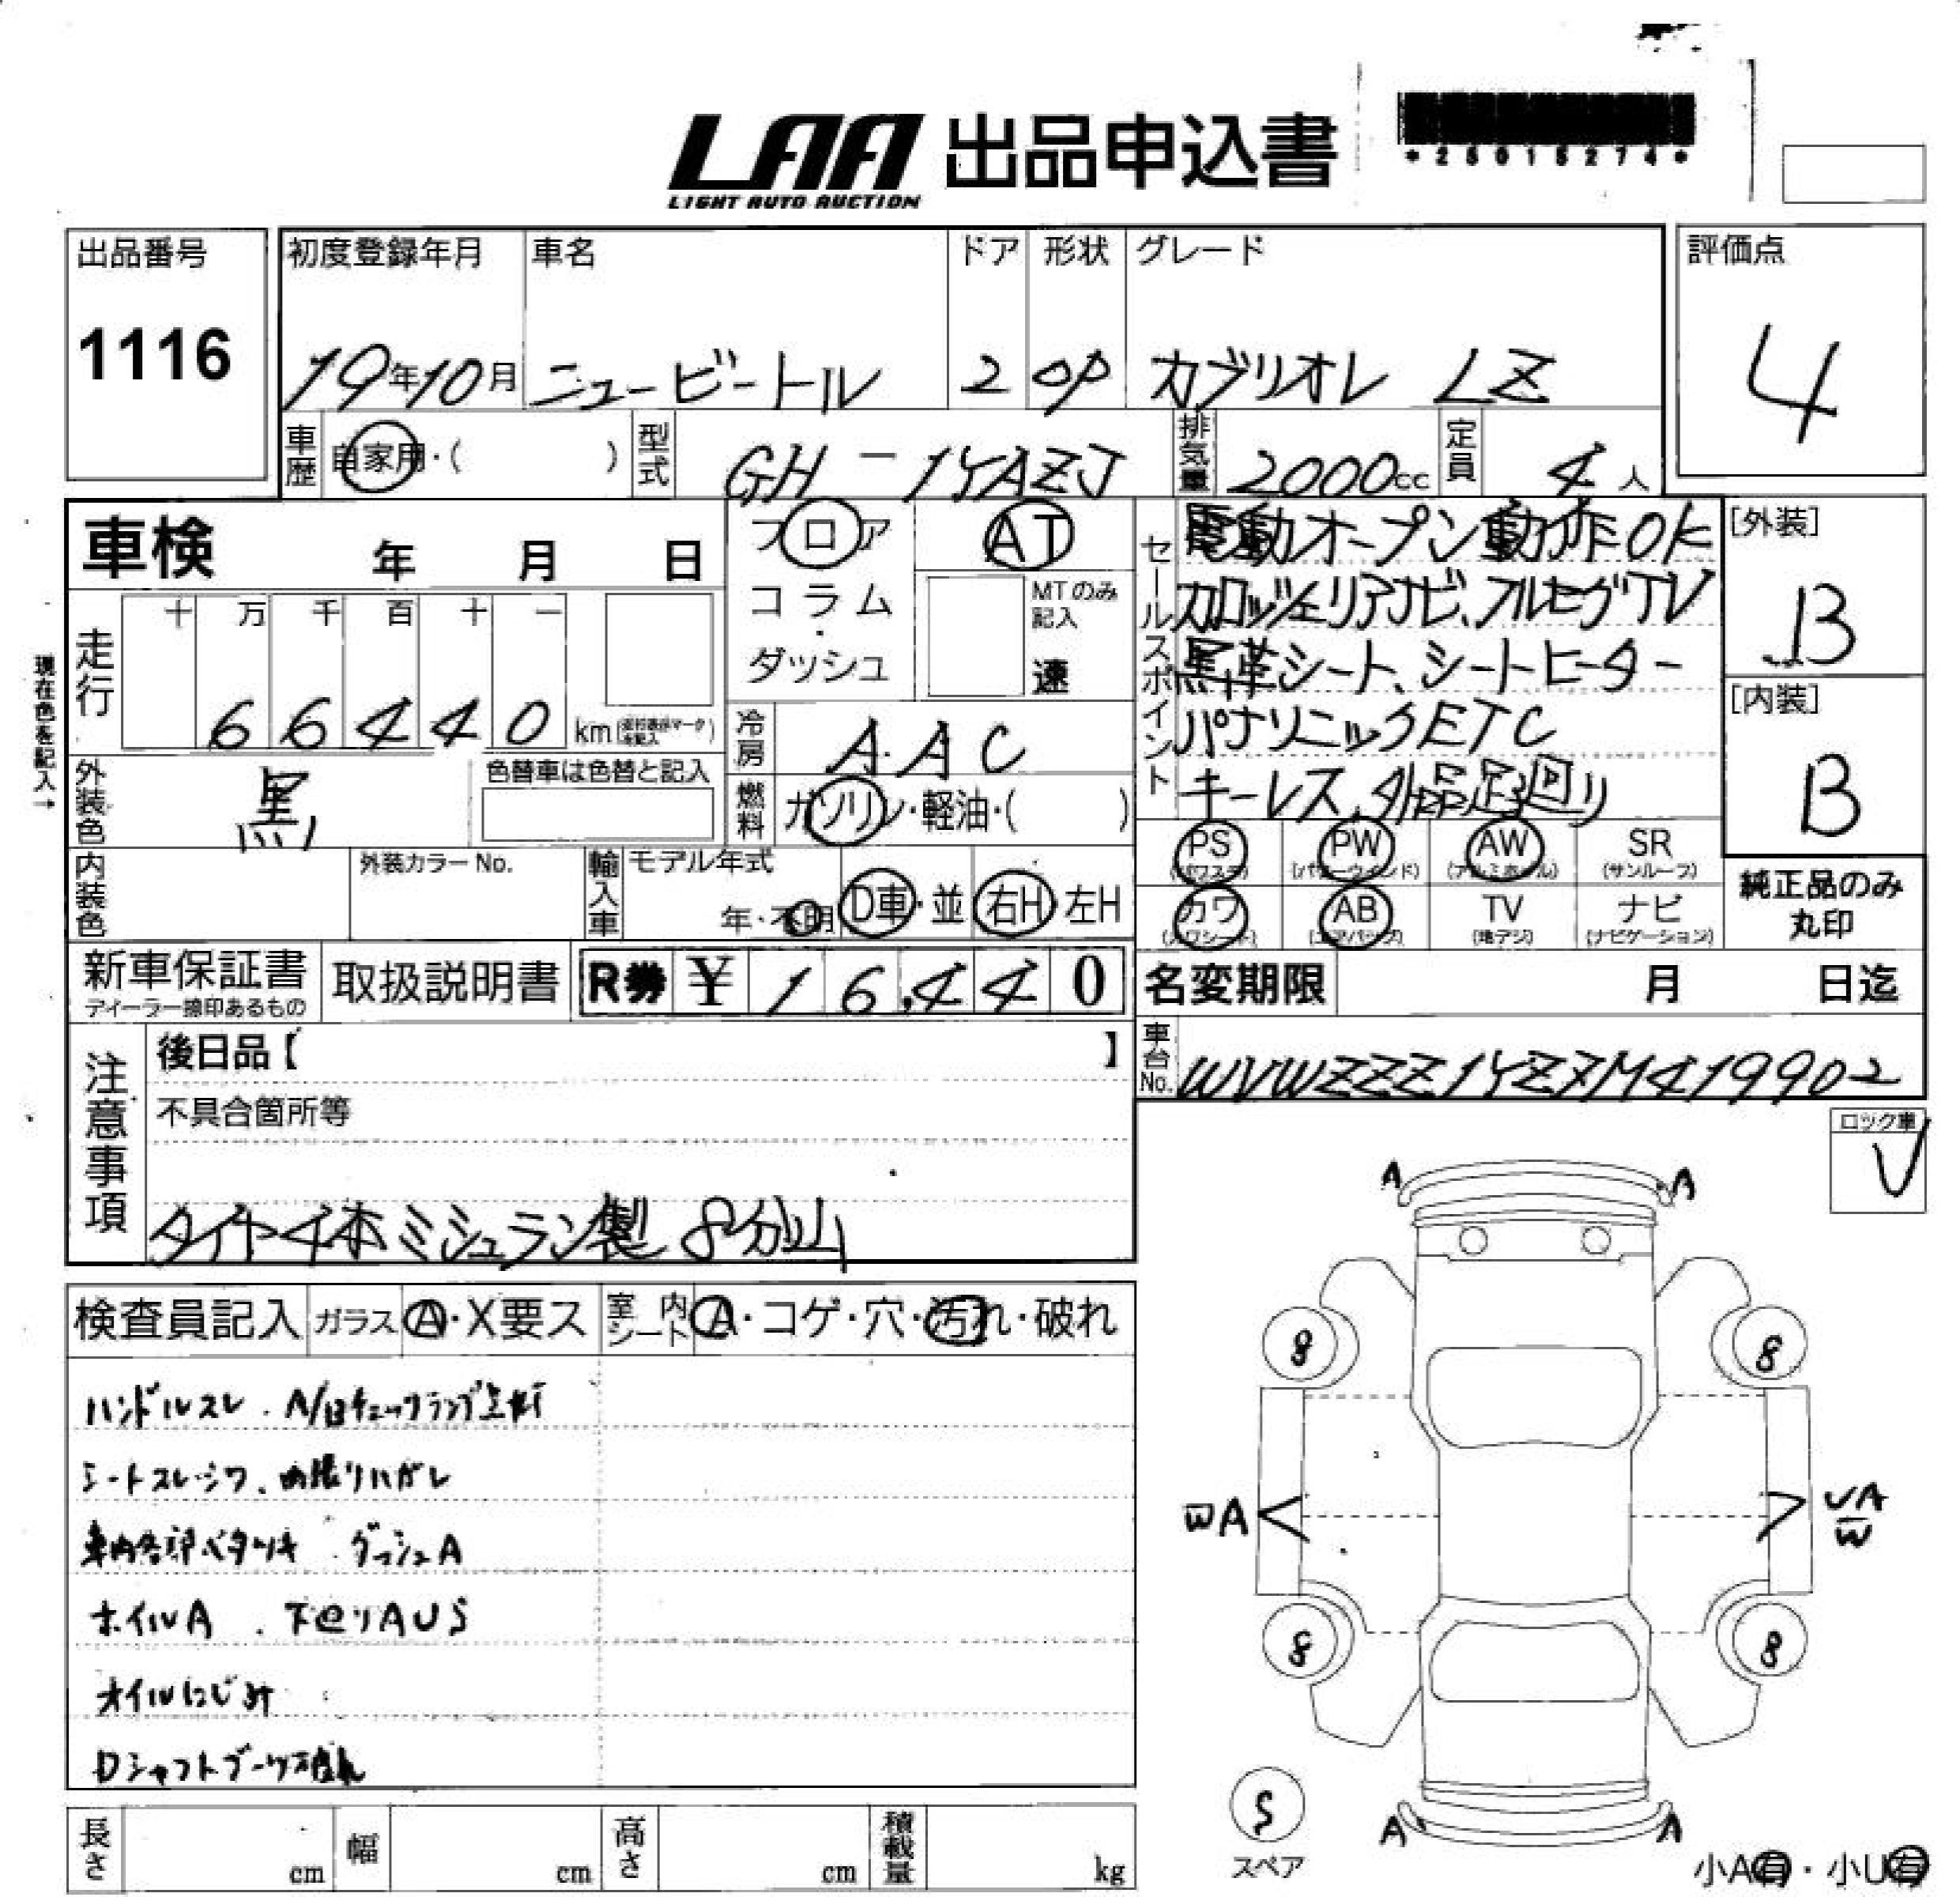 LAA 出品申込書
LIGHT AUTO AUCTION
*25015274*
出品番号
1116
初度登録年月 車名 ドア 形状 グレード
19年10月 ニュービートル 2 OP カブリオレ LZ
評価点
4
車歴 自家用・( ) 型式 GH-1YAZJ 排気量 2000cc 定員 4人
車検 年 月 日
フロア
コラム
・
ダッシュ
AT
MTのみ
記入
速
セールスポイント
電動オープン動作OK
カロッツェリアナビ、フルセグTV
黒革シート、シートヒーター
パナソニックETC
キーレス、外品足回り
[外装]
B
[内装]
B
現在色を記入→
走行 十 万 千 百 十 一
66440 km
冷房 AAC
外装色 黒 色替車は色替と記入
燃料 ガソリン・軽油・( )
PS PW AW SR
(パワステ) (パワーウインド) (アルミホイル) (サンルーフ)
カワ AB TV ナビ
(カワシート) (エアバッグ) (地デジ) (ナビゲーション)
純正品のみ
丸印
内装色 外装カラーNo. 輸入車 モデル年式
年・不明 D車・並 右H・左H
新車保証書
ディーラー捺印あるもの
取扱説明書 R券 ¥ 16,440
名変期限 月 日迄
車台No. WVWZZZ1YZ7M419902
注意事項
後日品【 】
不具合箇所等
タイヤ4本ミシュラン製 8分山
ロック車
V
検査員記入 ガラス A・X要ス 室内シート A・コゲ・穴・汚れ・破れ
ハンドルスレ . A/Bチェックランプ点灯
シートスレ・シワ、内張りハガレ
車内各部ベタツキ . ダッシュA
ホイルA . 下回りAUS
オイルにじみ
Dシャフトブーツ破れ
A A
8 8
WA UA
W
8 8
S
スペア
A A
小A有・小U有
長さ cm 幅 cm 高さ cm 積載量 kg